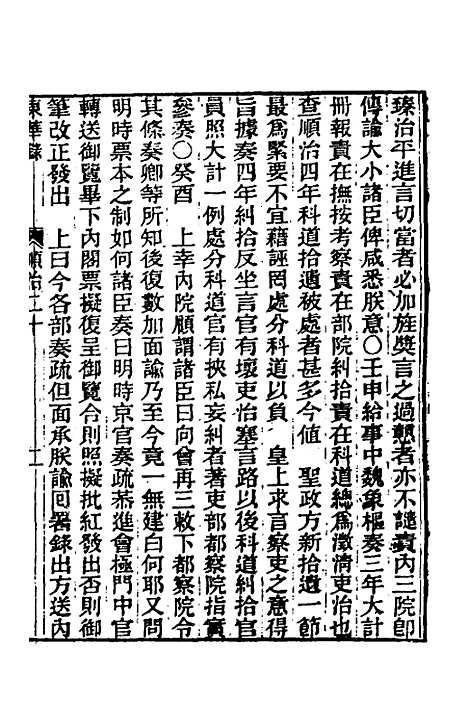 臻治平進言切當者必加旌獎言之過戇者亦不譴責內三院卽
傳諭大小諸臣俾咸悉朕意〇壬申給事中魏象樞奏三年大計
冊報責在撫按考察責在部院糾拾責在科道總爲澂淸吏治也
查順治四年科道拾遺被處者甚多今値　聖政方新拾遺一節
最爲緊要不宜藉誣罔處分科道以負　皇上求言察吏之意得
旨據奏四年糾拾反坐言官有壞吏治塞言路以後科道糾拾官
員照大計一例處分科道官有挾私妄糾者著吏部都察院指實
參奏〇癸酉　上幸內院顧謂諸臣曰向會再三敕下都察院令
其條奏卿等所知後復數加面諭乃至今竟一無建白何耶又問
明時票本之制如何諸臣奏曰明時京官奏疏恭進會極門中官
轉送御覽畢下內閣票擬復呈御覽合則照擬批紅發出否則御
筆改正發出　上曰今各部奏疏但面承朕諭回署錄出方送內
東華錄　順治二十　二